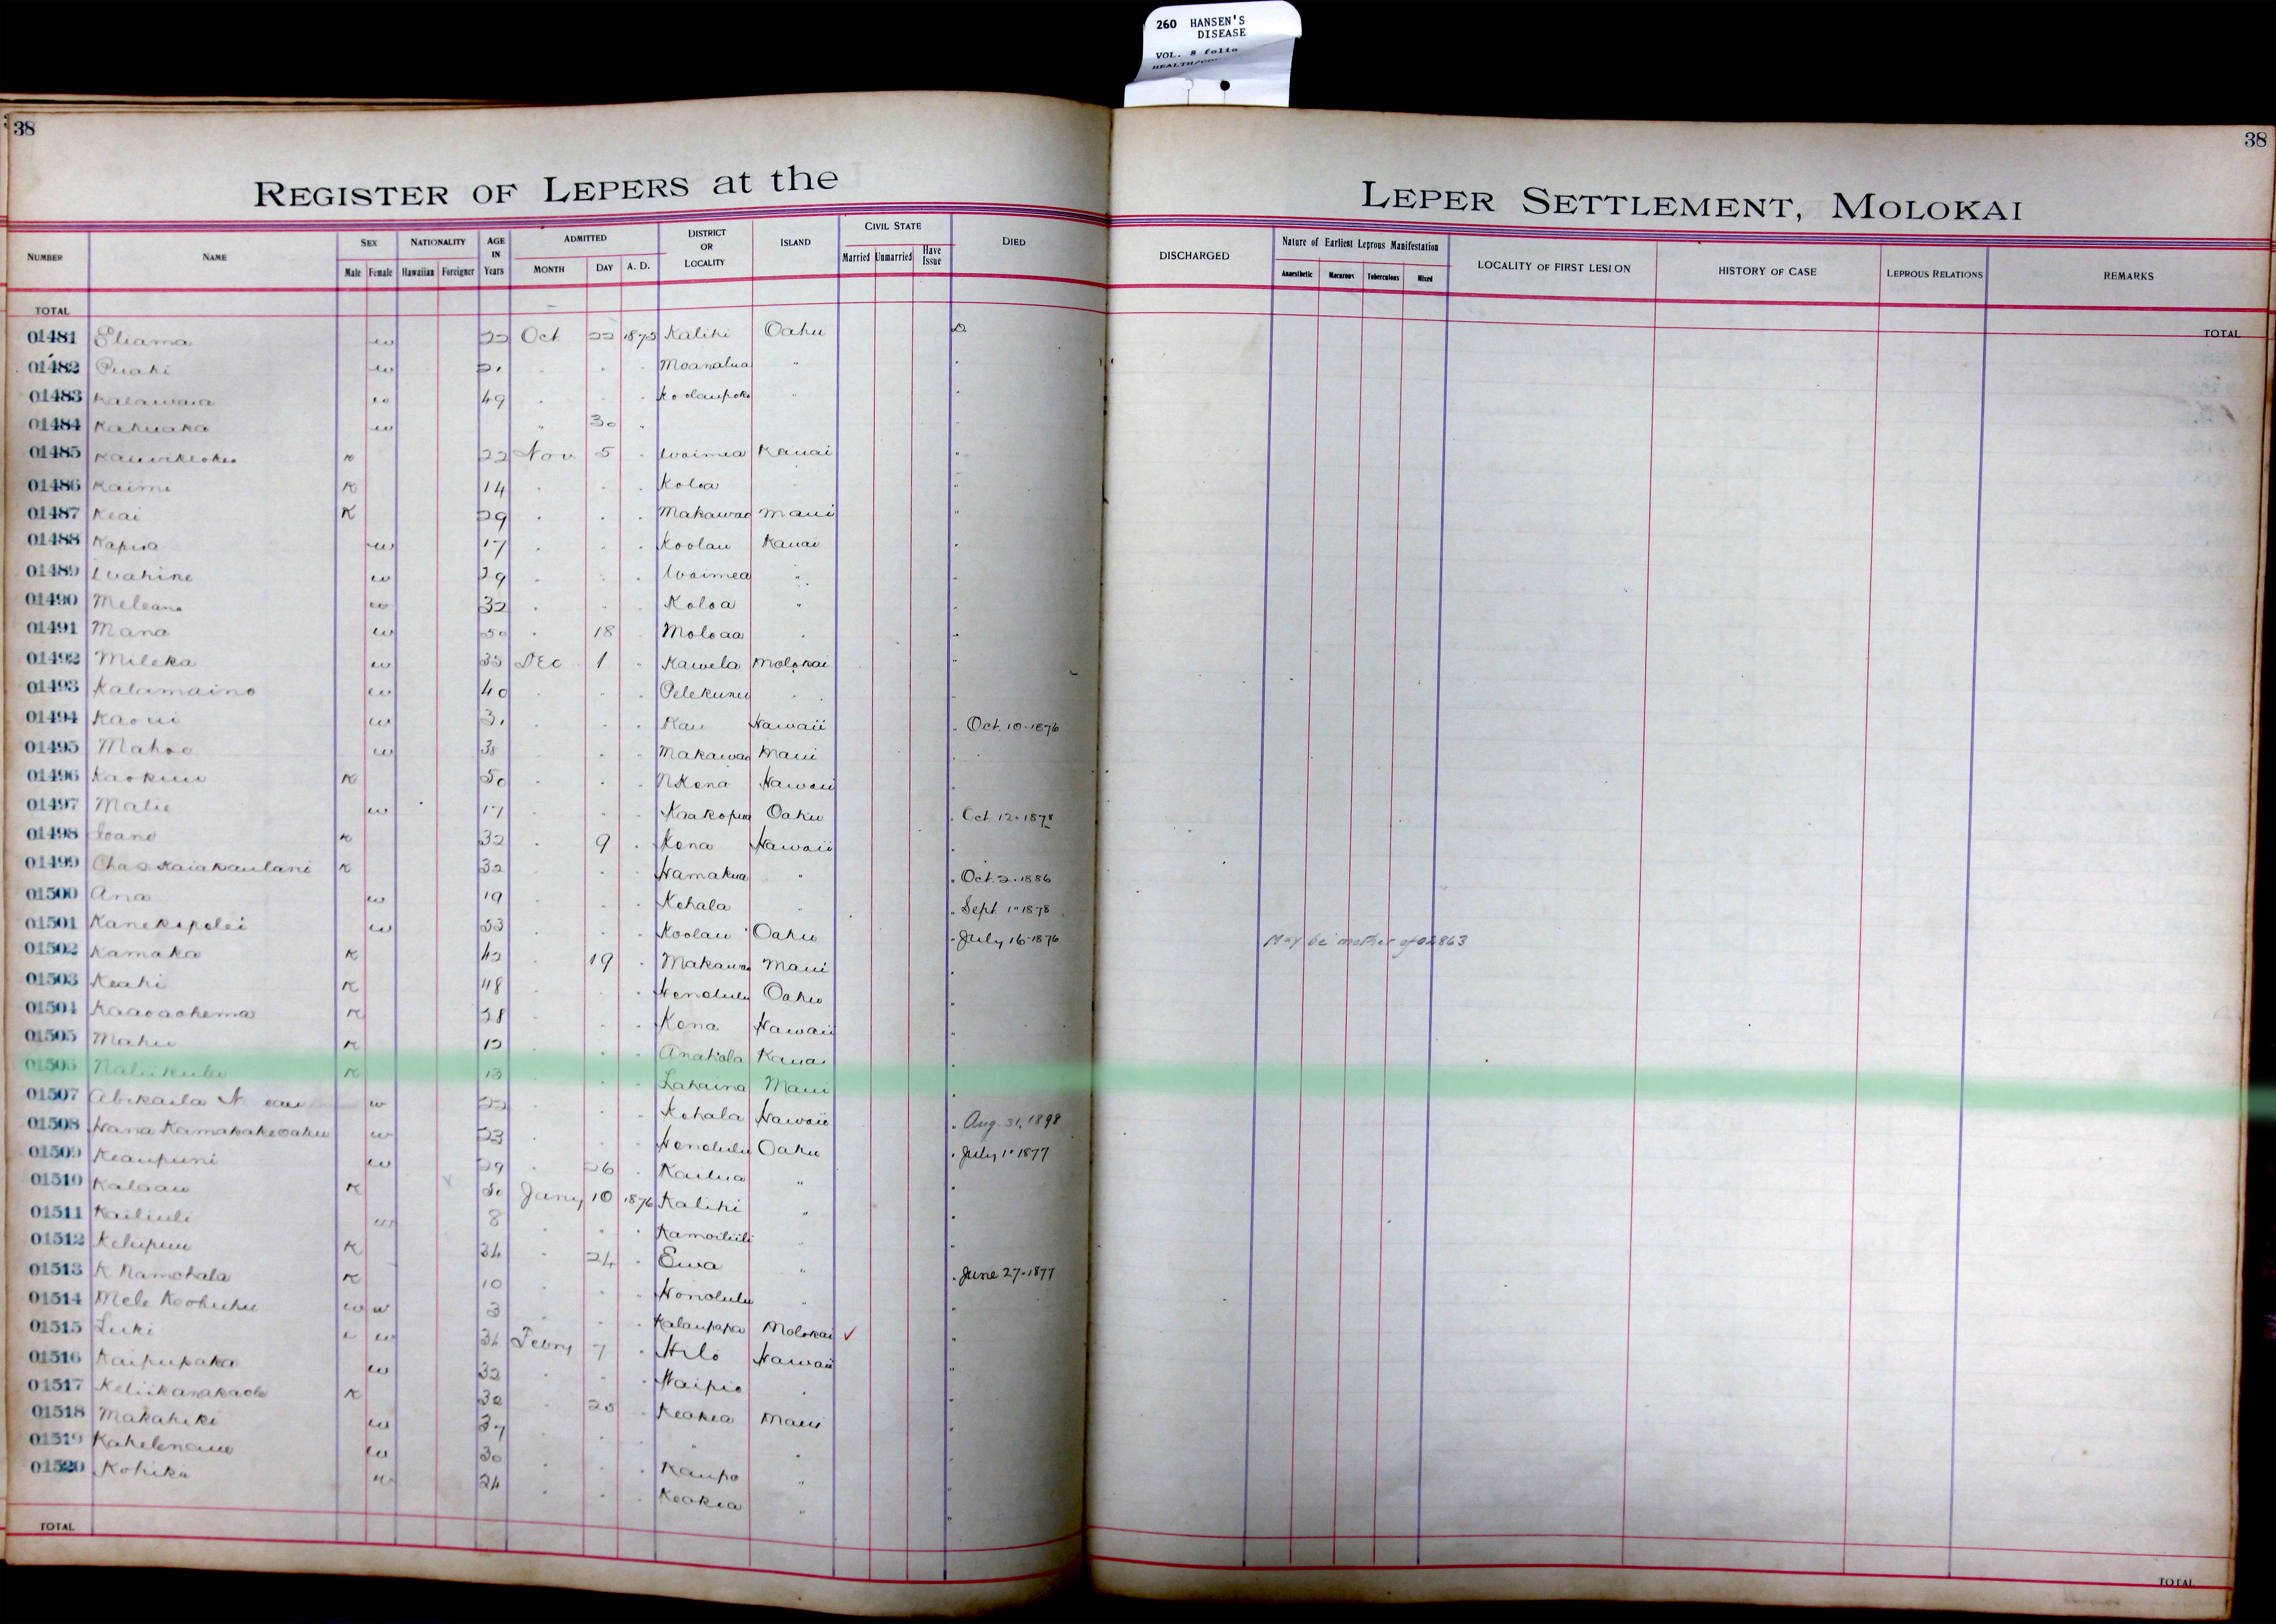 260 HANSEN'S
DISEASE
VOL. 8 folio
38
38
REGISTER OF LEPERS at the
LEPER SETTLEMENT, MOLOKAI
NUMBER NAME SEX Male Female NATIONALITY Hawaiian Foreigner AGE IN Years ADMITTED MONTH DAY A. D. DISTRICT OR LOCALITY ISLAND CIVIL STATE Married Unmarried Have Issue DIED
DISCHARGED Nature of Earliest Leprous Manifestation Anaesthetic Macurous Tuberculous Mixed LOCALITY OF FIRST LESION HISTORY OF CASE LEPROUS RELATIONS REMARKS
TOTAL
TOTAL
01481 Eliama w 22 Oct 22 1875 Kalihi Oahu D
01482 Puahi w 21 . . . Moanalua "
01483 Kalawaia w 49 . . . Koolaupoko "
01484 Kahuaka w " 30 "
01485 K 22 Nov 5 . Waimea Kauai "
01486 Kaimi K 14 . . . Koloa "
01487 Keai K 29 . . . Makawao Maui "
01488 Kapua w 17 . . . Koolau Kauai "
01489 Wahine w 29 . . . Waimea "
01490 Meleana w 32 . . . Koloa "
01491 Mana w 50 . 18 Moloaa "
01492 Mileka w 35 Dec 1 " Kawela Molokai "
01493 Kalamaino w 40 . . . Pelekunu "
01494 Kaoui w 31 . . . Kau Hawaii " Oct. 10-1876
01495 Mahoe w 38 . . Makawao Maui "
01496 Kaokuu K 50 . . . N Kona Hawaii "
01497 Malie w 17 . . Kaakopua Oahu " Oct 12-1878
01498 Ioane K 32 . 9 . Kona Hawaii "
01499 Chas Kaiakaulani K 32 . . . Hamakua " " Oct. 2-1886
01500 Ana w 19 . . . Kohala " " Sept 1-1878
01501 Kanekapolei w 53 . . . Koolau Oahu " July 16-1876 May be mother of 02863
01502 Kamaka K 42 . 19 . Makawao Maui "
01503 Keahi K 48 . . . Honolulu Oahu "
01504 Kaaoaohema K 28 . . . Kona Hawaii "
01505 Mahu K 12 . . . Anahola Kauai "
01506 Naliikula K 13 . . . Lahaina Maui "
01507 Abikaila N w 22 . . . Kohala Hawaii " Aug. 31, 1898
01508 Hana Kamakakeoahu w 23 . . . Honolulu Oahu " July 1-1877
01509 Keaupuni w 29 . 26 . Kailua " "
01510 Kalaau K 50 Jany 10 1876 Kalihi " "
01511 Kailiuli w 8 . . . Kamoiliili " "
01512 Kelupuu K 34 . 24 . Ewa " " June 27-1877
01513 K Namohala K 10 . . . Honolulu " "
01514 Mele Keohuhu w w 3 . . . Kalaupapa Molokai ✓ "
01515 Luki w 34 Febry 7 . Hilo Hawaii "
01516 Kaipupaka w 32 . . . Waipio " "
01517 Keliikanakaole K 30 . 25 . Keokea Maui "
01518 Makahiki w 37 . . " " "
01519 w 30 . . . Kaupo " "
01520 Kohika w 24 . . . Keokea " "
TOTAL
TOTAL